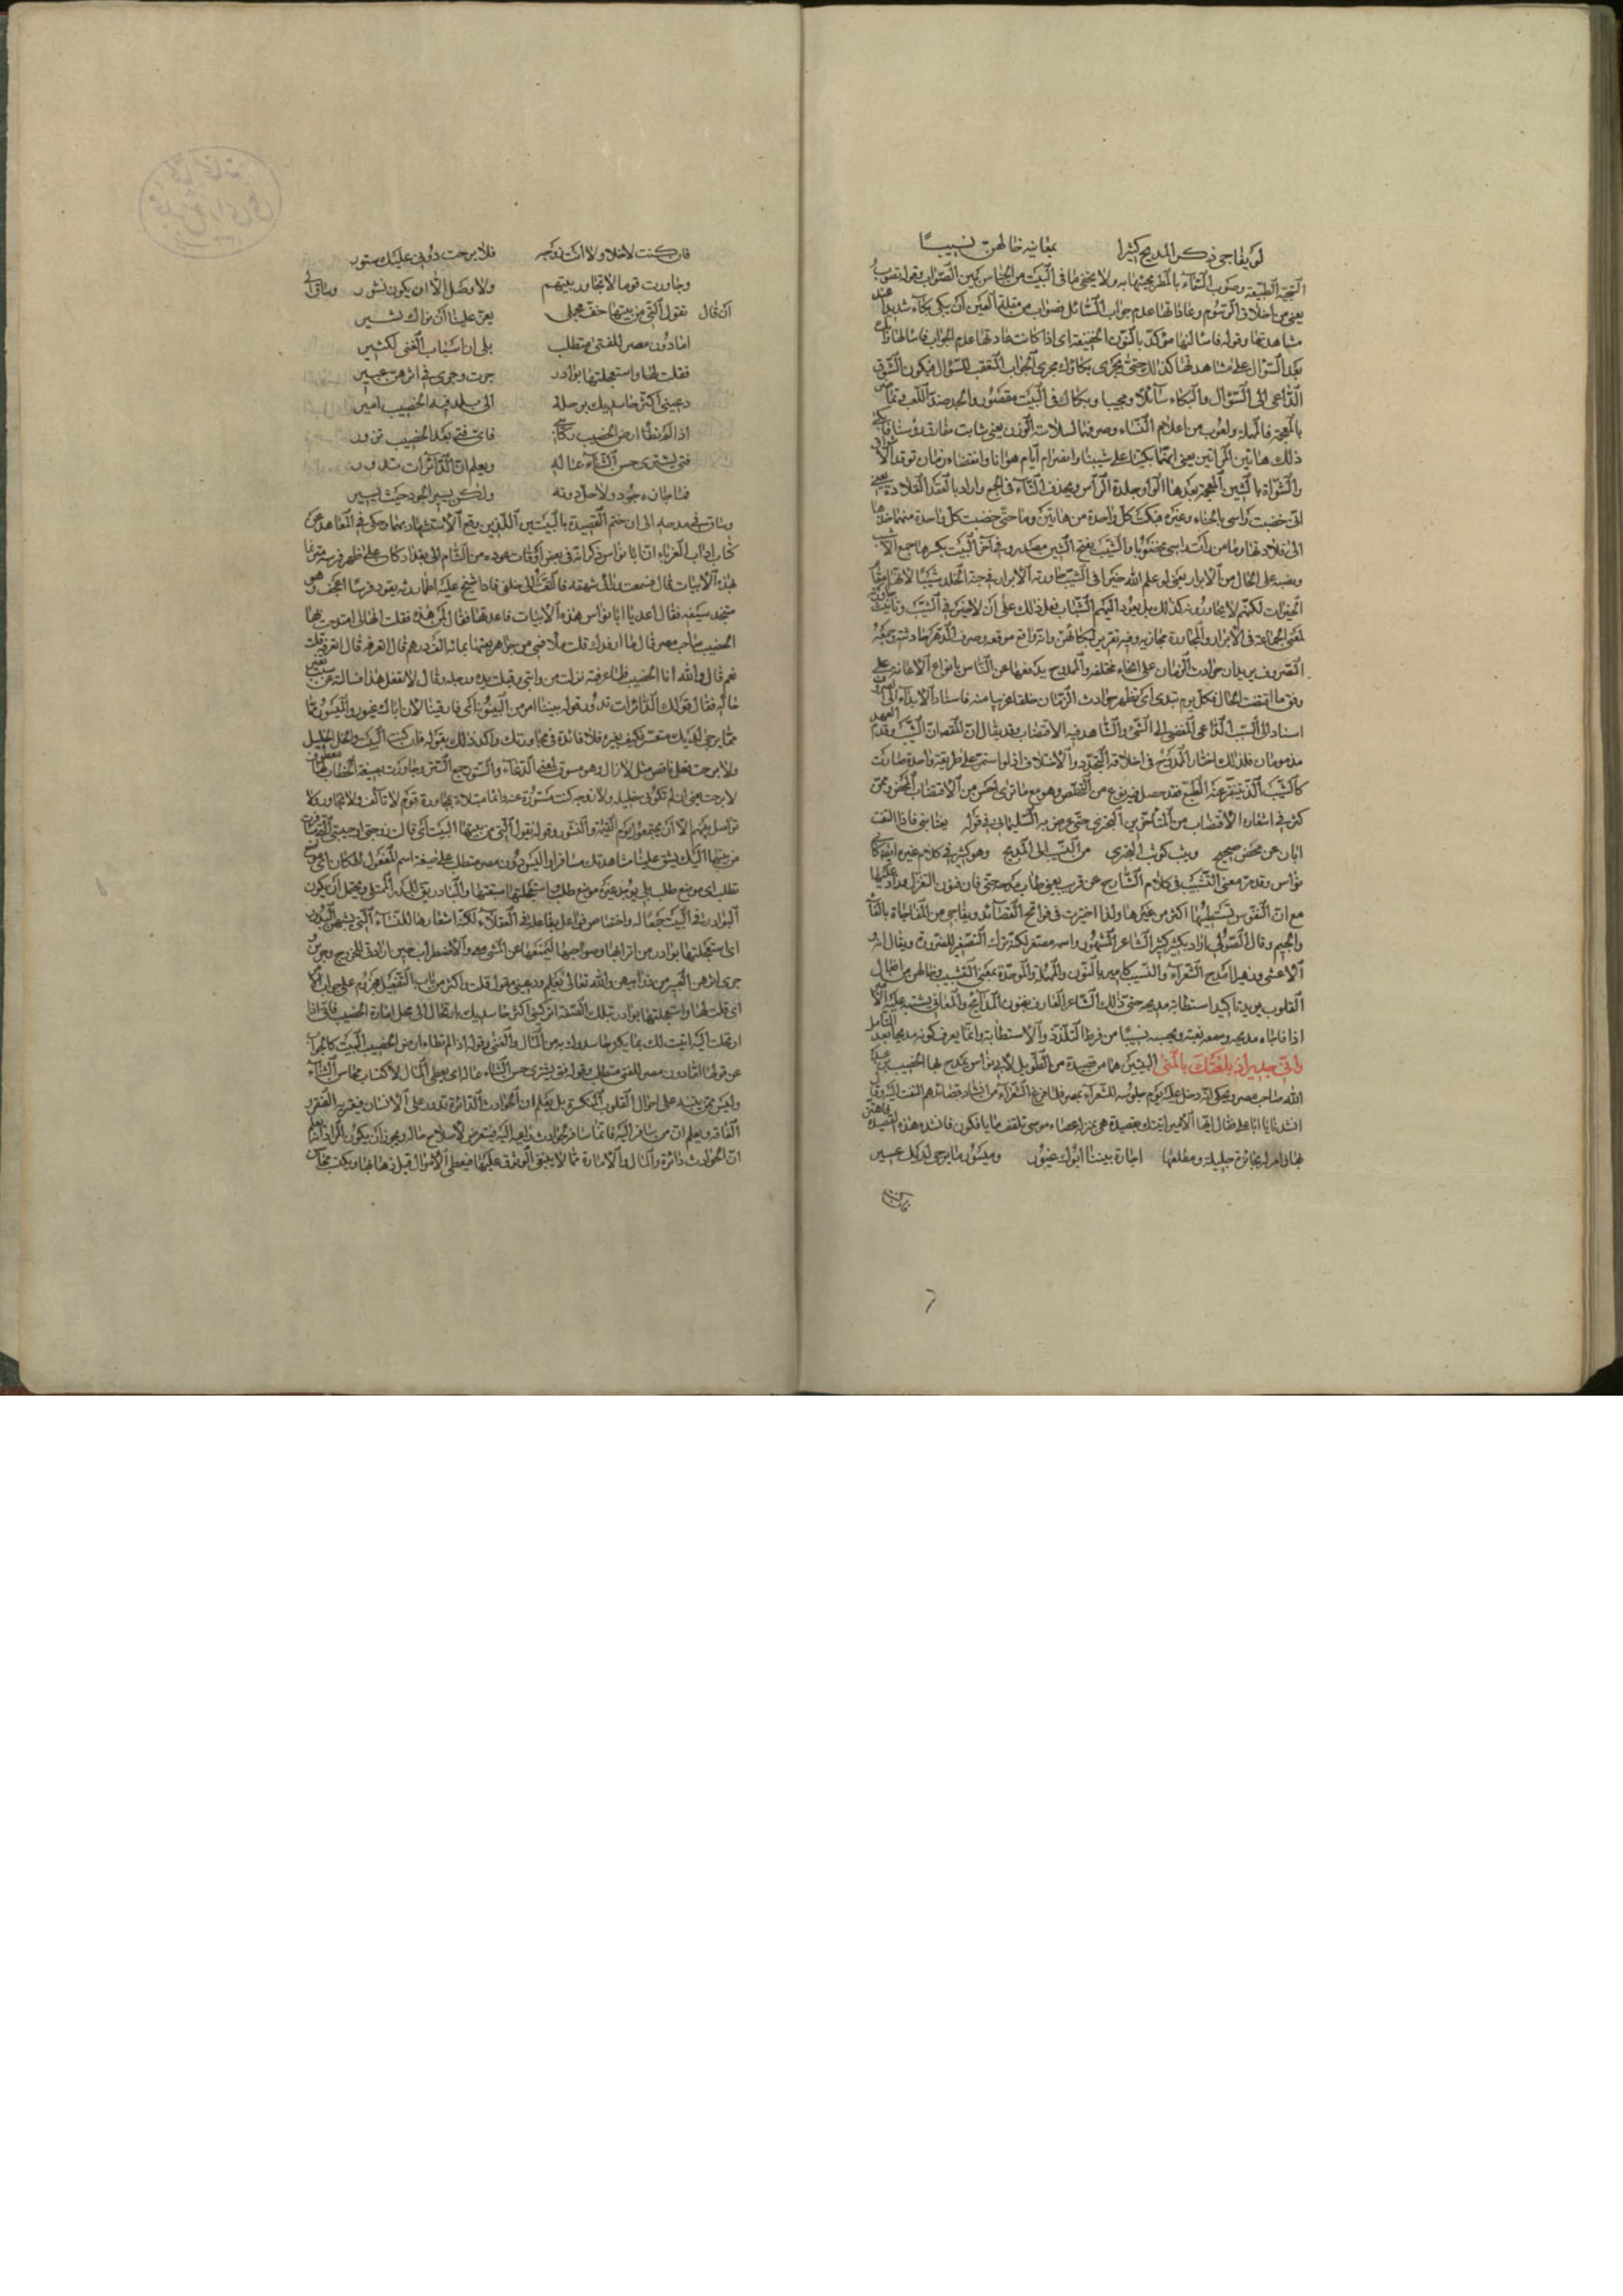 لو يفاجى ذكر المديح كثيرا بمعانيه خالهن نسيبا
التحية الطيبة وصوب السماء بالمطر مجيئها به ولا يخفى ما في البيت من الجناس بين الصواب وقوله تصوب
يعنى من اخلاق الرسوم وعاداتها عدم جواب السائل فصواب من مقلة العين أن يبكى بكاء شديدا عند
مشاهدتها وقوله فاسألنها مؤكد بالنون الخفيفة اى اذا كانت عادتها عدم الجواب فاسألها
بعد السؤال على مشاهدتها كذلك حتى يجرى بكاؤك مجرى الجواب المتعقب للسؤال فيكون الشوق
الداعى الى السؤال والبكاء سائلا ومجيبا وبكاك في البيت مقصور والجد ضد اللعب
بالمعجمة فالمهملة ولعوب من اعلام النساء وصرفها لسلامة الوزن يعنى شابت مفارق رؤسنا
ذلك هاتين المراتين يعنى انهما بكيتا على شيبنا وانصرام أيام هوانا وانقضاء زمان توقد
والشواة بالشين المعجمة بعدها الواو جلدة الرأس ويحذف التاء في الجمع واراد بالعقد القلادة يعنى
انى خضبت راسى بالحناء وغيره فبكت كل واحدة من هاتين وما حتى خضبت كل واحدة منهما خدها
الى قلادتها وما من رأت راسى مخضوبا والشيب بفتح الشين مصدر وفي آخر البيت بكسرها جمع الاشيب
ونصبه على الحال من الابرار يعنى لو علم الله خيرا في الشيب جاورته الابرار في جنة الخلد شيبا
الخيرات لكنهم لا يجاورونه كذلك بل يعود اليهم الشباب فعل ذلك على أن لا خير في الشيب وتأنيث
لمعنى الجماعة في الابرار والمجاورة مجازية وفيه تقريب لبكائهن وانه واقع موقعه وصرف الدهر حادثته وجمعه
الصروف يريد ان حوادث الزمان على انحاء مختلفة والممدوح يدفعها عن الناس بانواع الاعانة على
وفق ما اقتضت الحال فكل يوم تبدى اى تظهر حوادث الزمان خلقا غريبا منه فاسناد الابداء الى
اسناد الى السبب الداعى المفضى الى الشئ والشاهد فيه الاقتضاب وقد يقال ان النقصان الشيب وقدم العهد
مذمومان فلذلك اختار الممدوح في اخلاقه التجدد والاختلاف اذ لو استمر على طريقة واحدة صارت
كالشيب الذى ينفر عنه الطبع فقد حصل فيه نوع من التخلص وهو مع ما ترى احسن من الاقتضاب المحض وممن
كثر في اشعاره الاقتضاب من المتأخرين البحترى حتى عرض به السليمانى في قوله يغتابنى فاذا التفت
ابان عن محض صحيح وثب كوثب البحترى من النسيب الى المديح وهو كثير في كلام غيره ايضا كابى
نواس وقد مر معنى التشبيب في كلام الشارح عن قريب يعنى طاب مدحه حتى فاق فنون الغزل
مع ان النفوس تستطيبها اكثر من غيرها ولذا اختيرت في فواتح القصائد ويفاجى من المفاجاة بالفاء
والجيم وقال الصولى اراد بكثير كثير الشاعر المشهور واسمه مصغر لكنه ترك التصغير للضرورة ويقال انه
الاعشى ونهيا امدح الشعراء والنسيب كامير بالنون والمهملة والموحدة بمعنى التشبيب وخالهن من افعال
القلوب يريد تاكيد استطابة مديحه حتى ان ذلك الشاعر العارف بفنون المدائح والمعانى يشتبه عليه
اذا فاجأه مديحه وسمعه بغتة ويحسبه نسيبا من فرط التلذذ والاستطابة وانما يعرف كونه مديحا بعد التأمل
وانى جدير اذ بلغتك بالمنى البيتين هما من قصيدة من الطويل لابى نواس يمدح بها الخصيب بن عبد
الله صاحب مصر ويحكى انه دخل عليه يوم جلوسه للشعراء بمصر فلما فرغ الشعراء من انشاد قصائدهم التفت اليه وقال
انشدنا يا ابا على فقال ايها الأمير انشدك قصيدة هى بمنزلة عصاء موسى تلقف ما يافكون فانشده هذه القصيدة فاهتز
لها وامر له بجائزة جليلة ومطلعها اجارة بيتينا ابوك غيور وميسور ما يرجى لديك عسير
فان كنت
فان كنت لا خلا ولا انت زوجة فلا برحت دونى عليك ستور
وجاورت قوما لا تجاور بينهم ولا وصل الا ان يكون نشور وساق الى
ان قال تقول التى من بيتها خف محملى يعز علينا أن نراك تسير
اما دون مصر للفتى متطلب بلى ان اسباب الغنى لكثير
فقلت لها واستعجلتها بوادر جرت وجرى في اثرهن عبير
دعينى اكثر حاسديك برحلة الى بلد فيه الخصيب امير
اذا لم تطأ ارض الخصيب ركابنا فاى فتى بعد الخصيب تزور
فتى يشترى حسن الثناء بماله ويعلم ان الدائرات تدور
فما جازه جود ولا حل دونه ولكن يسير الجود حيث يسير
وساق في مدحه الى ان ختم القصيدة بالبيتين اللذين وقع الاستشهاد بهما وحكى في المعاهد عن
كتاب اداب الغرباء ان ابا نواس ذكر انه في بعض أوقات عوده من الشام الى بغداد كان على ظهر فرسه مترنما
بهذه الابيات قال فسمعت وراى شهقة فالتفت الى خلفى فاذا شيخ عليه اطمار رثة يقود فرسا اعجف وهو
متجلد سيفه فقال أعد يا ابا نواس هذه الابيات فاعدتها فقال لمن هذه فقلت انها لى امتدحت بها
الخصيب صاحب مصر قال ما ارفدك قلت ملأ فمى من جواهر بعتها بمائة الف درهم قال اتعرفه قال اتعرفه قلت
نعم قال والله أنا الخصيب فلما عرفته نزلت من دابتى وقبلت يده ورجله وقال لا تفعل هذا فسالته عن سبب تغير
حاله فقال قولك الدائرات تدور قوله بيتينا امر من البينونة اى فارقينا لان اباك غيور والميسور مما
مما يرجى لديك متعسر فكيف بغيره فلا فائدة في مجاورتك واكد ذلك بقوله فان كنت البيت والخل الخليل
ولا برحت فعل ناقص مثل لا زال وهو مسوق لمعنى الدعاء والستور جمع الستر وجاورت بصيغة الخطاب
لا برحت يعنى ان لم تكونى خليلة ولا زوجة كنت مستورة عنى دائما مبتلاة بمجاورة قوم لا تآلف ولا تجاور ولا
تواصل بينهم الا أن يجتمعوا يوم القيمة والنشور وقوله تقول التى من بيتها البيت أى قالت زوجتى او حبيبتى
من بيتها اليك يشق علينا مشاهدتك مسافرا اليس دون مصر متطلب على صيغة اسم المفعول للمكان اى موضع
تطلب اى موضع طلب بلى يوجد غيره موضع طلب استعجلتها استبقتها والبادر يقال للبدر الممتلى ويحتمل أن يكون
البوادر في البيت جمعا له واختصاص فواعل بفاعل في العقلاء لكنه استعارها للنساء التى يشبهن البدور
اى استعجلتها بوادر من اترابها وصواحبها ليمنعنها عن المشى معى والاضطراب حين ارادتى للخروج وجرين و
جرى اثرهن العبير من ذوائبهن والله تعالى يعلم ودعينى مقول قلت واكثر من باب التفعيل مجزوم على جواب الامر
اى قلت لها واستعجلتها بوادر بتلك الصفة اتركينى اكثر حاسديك بارتحالى الى محل امارة الخصيب فانى اذا
ارتحلت اليه اتيت لك بما يكثر حاسدوك به من المال والغنى وقوله اذا لم تطا ارض الخصيب البيت كالجواب
عن قولها اما دون مصر للغنى متطلب وقوله فتى يشترى حسن الثناء بماله اى يعطى المال لاكتساب محاسن الثناء
وليس ممن يقيد على احوال القلوب المنكسرة بل يعلم ان الحوادث الدائرة تدور على الانسان فيعتريه الفقر و
الفاقة ويعلم ان من سافر اليه فانما سافر لحوادث داعية اليه فيتعرض لاصلاح حاله ويجوز أن يكون المراد انه يعلم
ان الحوادث دائرة والمال والامارة مما لا ينبغى الوثوق عليها فيعطى الاموال قبل ذهابها ويكتسب محاسن